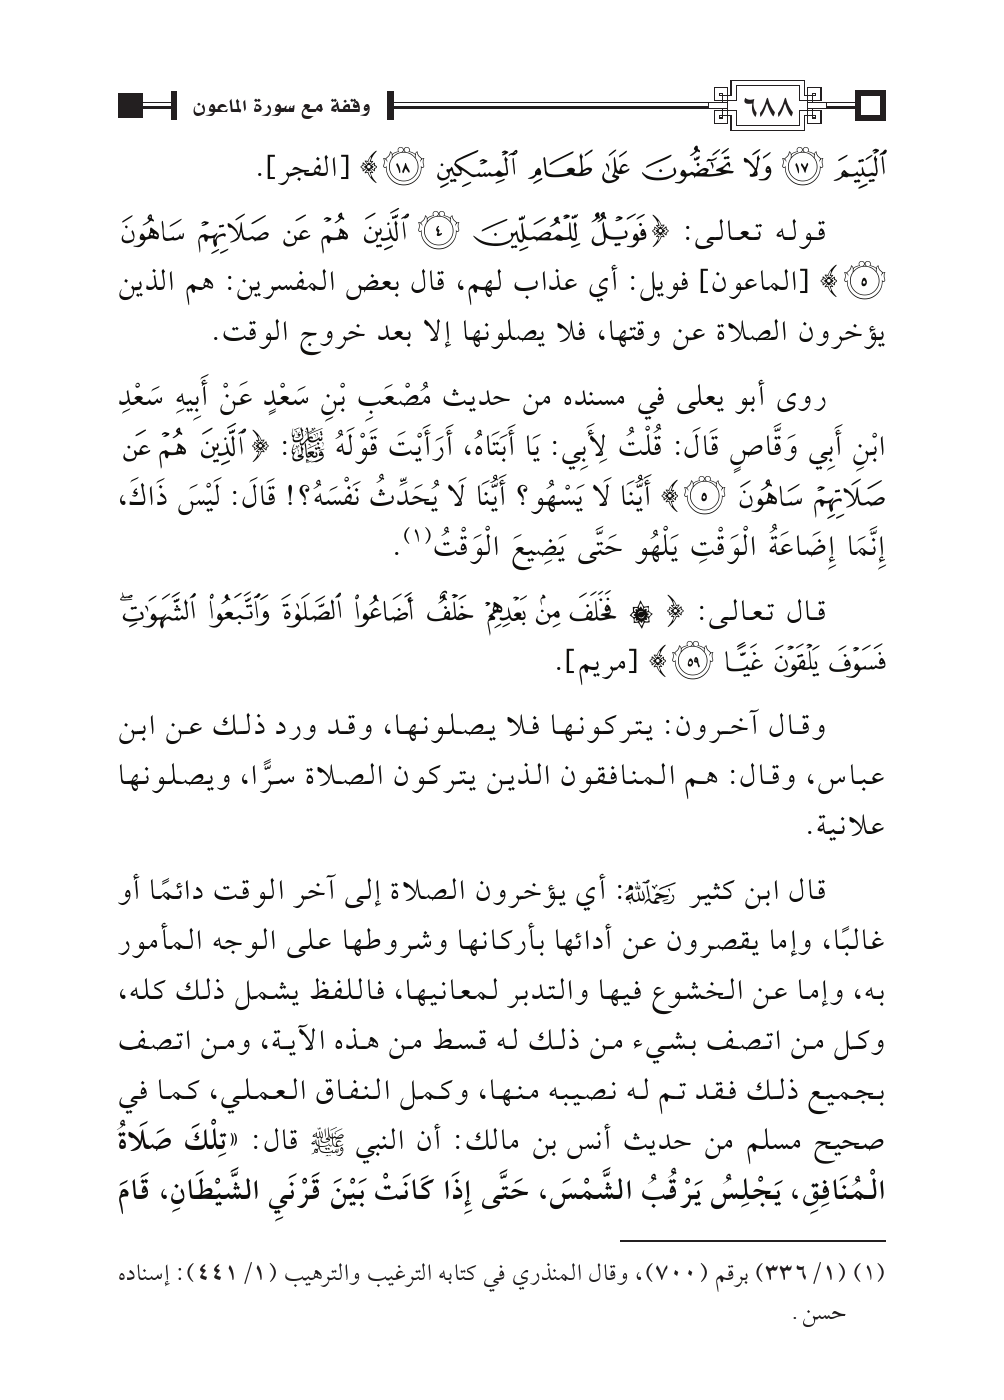 ٦٨٨ وقفة مع سورة الماعون
ٱلْيَتِيمَ ١٧ وَلَا تَحَٰٓضُّونَ عَلَىٰ طَعَامِ ٱلْمِسْكِينِ ١٨ ﴾ [الفجر].
قوله تعالى: ﴿ فَوَيْلٌ لِّلْمُصَلِّينَ ٤ ٱلَّذِينَ هُمْ عَن صَلَاتِهِمْ سَاهُونَ
٥ ﴾ [الماعون] فويل: أي عذاب لهم، قال بعض المفسرين: هم الذين
يؤخرون الصلاة عن وقتها، فلا يصلونها إلا بعد خروج الوقت.
روى أبو يعلى في مسنده من حديث مُصْعَبِ بْنِ سَعْدٍ عَنْ أَبِيهِ سَعْدِ
ابْنِ أَبِي وَقَّاصٍ قَالَ: قُلْتُ لِأَبِي: يَا أَبَتَاهُ، أَرَأَيْتَ قَوْلَهُ تَبَارَكَ وَتَعَالَى: ﴿ ٱلَّذِينَ هُمْ عَن
صَلَاتِهِمْ سَاهُونَ ٥ ﴾ أَيُّنَا لَا يَسْهُو؟ أَيُّنَا لَا يُحَدِّثُ نَفْسَهُ؟! قَالَ: لَيْسَ ذَاكَ،
إِنَّمَا إِضَاعَةُ الْوَقْتِ يَلْهُو حَتَّى يَضِيعَ الْوَقْتُ(١).
قال تعالى: ﴿ ۞ فَخَلَفَ مِنۢ بَعْدِهِمْ خَلْفٌ أَضَاعُوا۟ ٱلصَّلَوٰةَ وَٱتَّبَعُوا۟ ٱلشَّهَوَٰتِ ۖ
فَسَوْفَ يَلْقَوْنَ غَيًّا ٥٩ ﴾ [مريم].
وقال آخرون: يتركونها فلا يصلونها، وقد ورد ذلك عن ابن
عباس، وقال: هم المنافقون الذين يتركون الصلاة سرًّا، ويصلونها
علانية.
قال ابن كثير رحمه الله: أي يؤخرون الصلاة إلى آخر الوقت دائمًا أو
غالبًا، وإما يقصرون عن أدائها بأركانها وشروطها على الوجه المأمور
به، وإما عن الخشوع فيها والتدبر لمعانيها، فاللفظ يشمل ذلك كله،
وكل من اتصف بشيء من ذلك له قسط من هذه الآية، ومن اتصف
بجميع ذلك فقد تم له نصيبه منها، وكمل النفاق العملي، كما في
صحيح مسلم من حديث أنس بن مالك: أن النبي ﷺ قال: «تِلْكَ صَلَاةُ
الْمُنَافِقِ، يَجْلِسُ يَرْقُبُ الشَّمْسَ، حَتَّى إِذَا كَانَتْ بَيْنَ قَرْنَيِ الشَّيْطَانِ، قَامَ
(١) (١/ ٣٣٦) برقم (٧٠٠)، وقال المنذري في كتابه الترغيب والترهيب (١/ ٤٤١): إسناده
حسن .